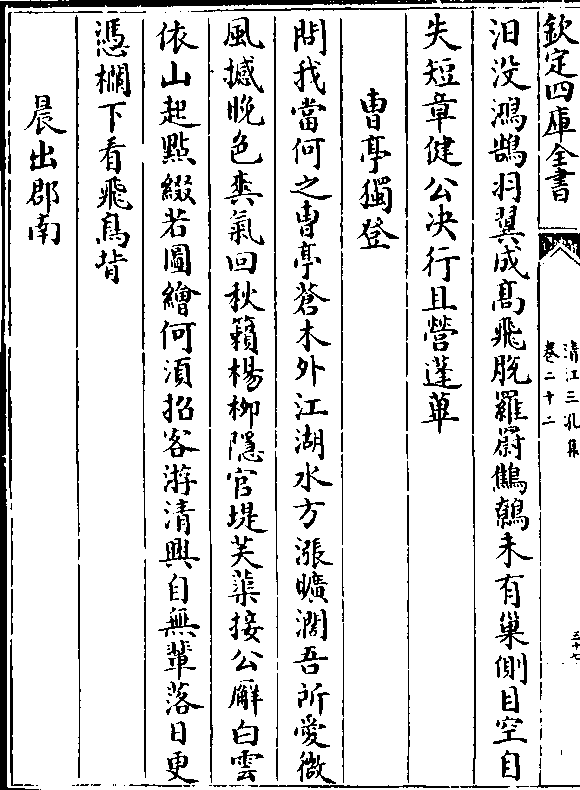 欽定四庫全書
清江三孔集
卷二十二
三十七
汨没鴻鵠羽翼成髙飛脱羅罻鷦鷯未有巢側目空自
失短章健公决行且營蓬蓽
曹亭獨登
問我當何之曹亭蒼木外江湖水方漲曠濶吾所愛微
風撼晚色爽氣回秋籟楊柳隱官堤芙蕖接公廨白雲
依山起點綴若圖繪何須招客游清興自無輩落日更
憑欄下看飛鳥背
晨出郡南